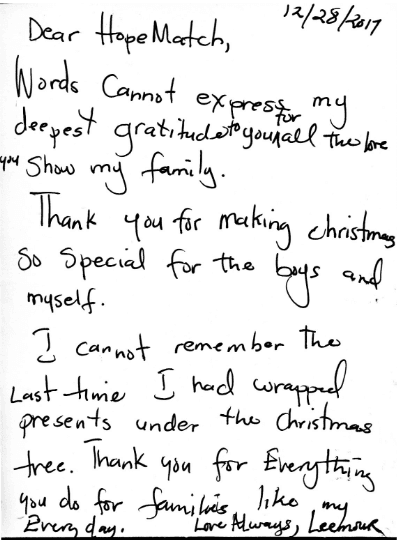 12/28/2017
Dear HopeMatch,
Words Cannot express my
deepest gratitude to you for all the love
you Show my family.
Thank you for making christmas
So Special for the boys and
myself.
I cannot remember the
Last time I had wrapped
presents under the Christmas
tree. Thank you for Everything
you do for families like my
Every day. Love Always,